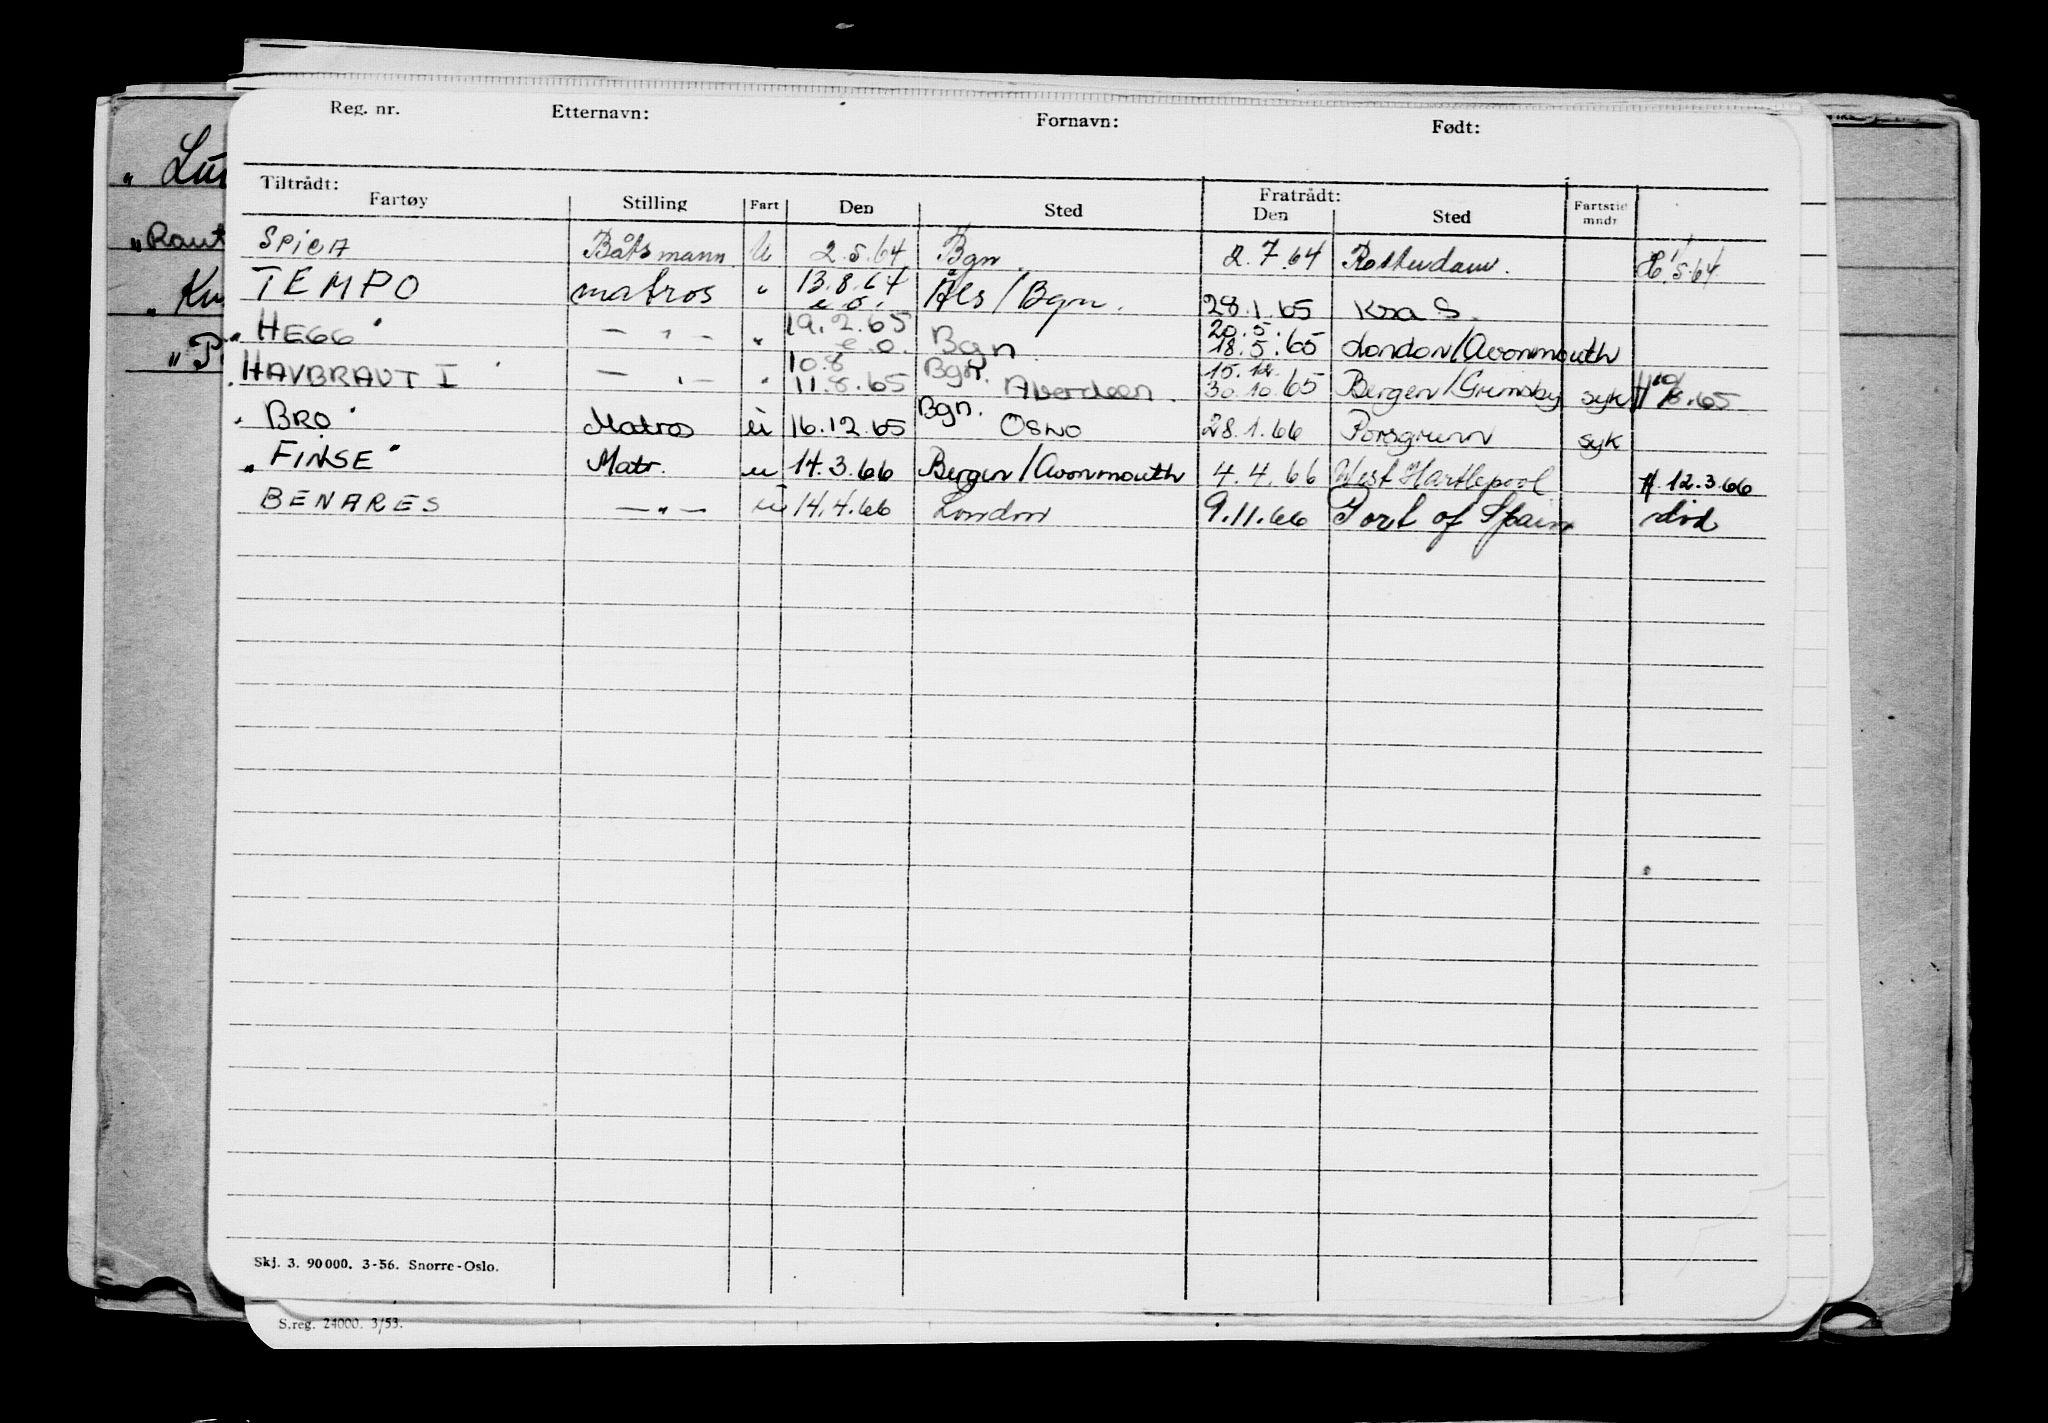 Reg. nr. Etternavn: Fornavn: Født:
Tiltrådt: Fratrådt:
Fartøy Stilling Fart Den Sted Den Sted Fartstid mndr
SPICA Båtsmann U 2.5.64 Bgn. 2.7.64 Rotterdam. 1/5.64
TEMPO matros " 13.8.64 e.o. Åls/Bgn. 28.1.65 Krsa S.
"HEGG" — " — " 19.2.65 e.o. Bgn. 20.5. 18.5.65 London/Avonmouth
"HAVBRAUT I" — " — " 10.8 11.8.65 Bgn. Aberdeen. 15.12. 30.10.65 Bergen/Grimsby syk H 10/8.65
"BRO" Matros u 16.12.65 Bgn. Oslo 28.1.66 Porsgrunn syk
"FINSE" Matr. u 14.3.66 Bergen/Avonmouth 4.4.66 West Hartlepool H. 12.3.66
BENARES — " — u 14.4.66 London 9.11.66 Port of Spain död
"Lu
"Raut
"Kn
"P
Skj. 3. 90000. 3-56. Snorre-Oslo.
S.reg. 24000. 3/53.